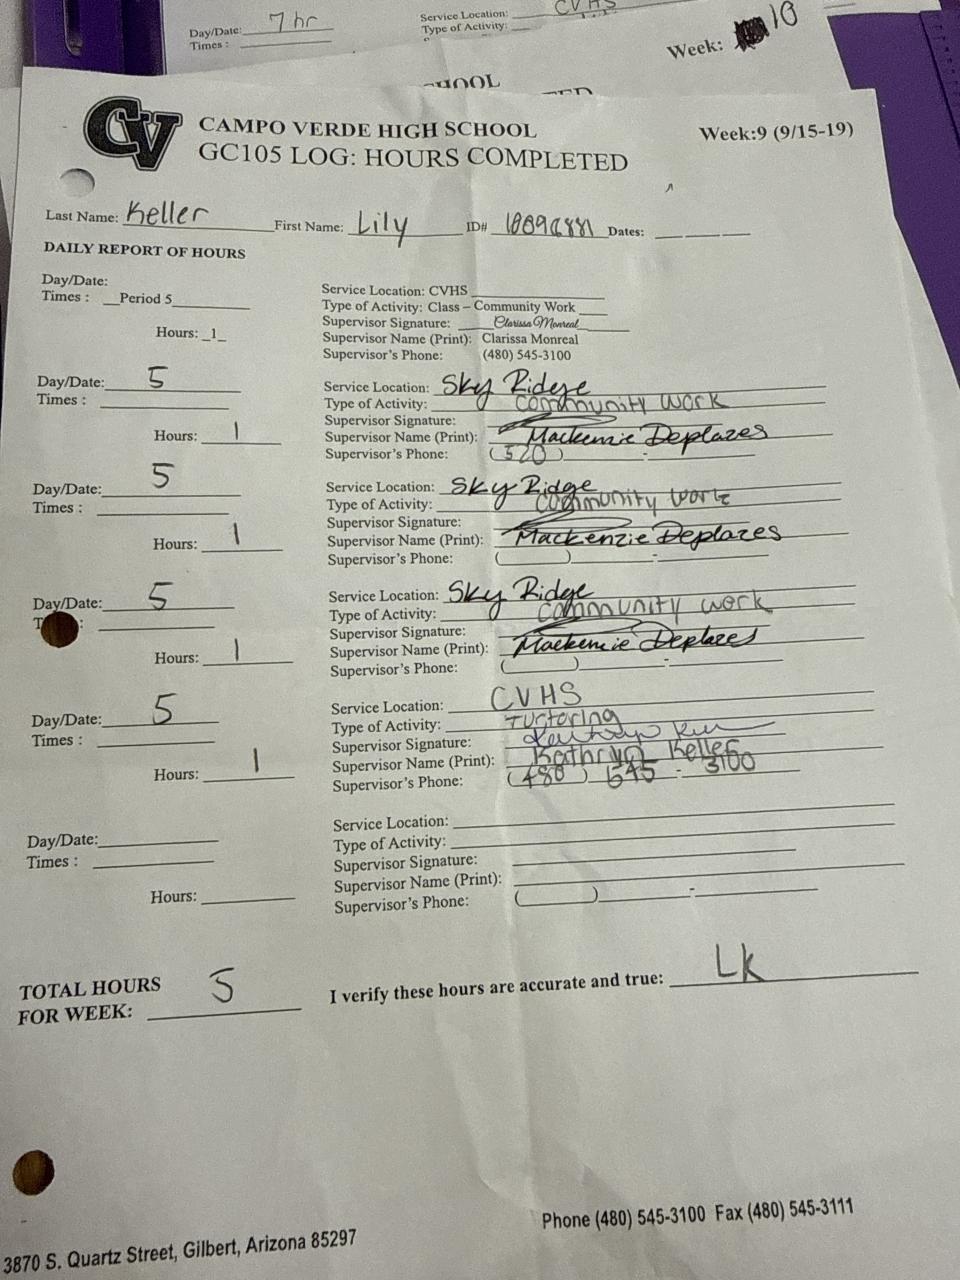 Day/Date: 7 hr
Times :
Service Location: CVHS
Type of Activity:
Week: 10
CV
CAMPO VERDE HIGH SCHOOL
GC105 LOG: HOURS COMPLETED
Week:9 (9/15-19)
Last Name: Keller First Name: Lily ID# Dates:
DAILY REPORT OF HOURS
Day/Date:
Times : Period 5
Hours: 1
Service Location: CVHS
Type of Activity: Class – Community Work
Supervisor Signature: Clarissa Monreal
Supervisor Name (Print): Clarissa Monreal
Supervisor's Phone: (480) 545-3100
Day/Date: 5
Times :
Hours: 1
Service Location: Sky Ridge
Type of Activity: community work
Supervisor Signature:
Supervisor Name (Print): Mackenzie Deplazes
Supervisor's Phone: (520) -
Day/Date: 5
Times :
Hours: 1
Service Location: Sky Ridge
Type of Activity: community work
Supervisor Signature:
Supervisor Name (Print): Mackenzie Deplazes
Supervisor's Phone: ( ) -
Day/Date: 5
Hours: 1
Service Location: Sky Ridge
Type of Activity: community work
Supervisor Signature:
Supervisor Name (Print): Mackenzie Deplazes
Supervisor's Phone: ( ) -
Day/Date: 5
Times :
Hours: 1
Service Location: CVHS
Type of Activity: Turtoring
Supervisor Signature:
Supervisor Name (Print): Kathryn Keller
Supervisor's Phone: (480) 545 - 3100
Day/Date:
Times :
Hours:
Service Location:
Type of Activity:
Supervisor Signature:
Supervisor Name (Print):
Supervisor's Phone: ( ) -
TOTAL HOURS
FOR WEEK: 5
I verify these hours are accurate and true: LK
3870 S. Quartz Street, Gilbert, Arizona 85297
Phone (480) 545-3100 Fax (480) 545-3111